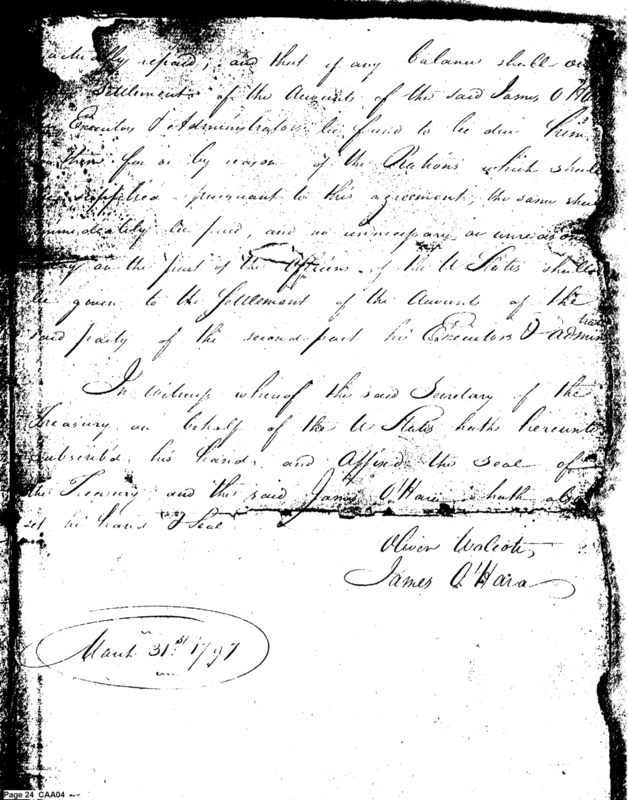 actually repaid; and that if any balance shall on
Settlement of the Accounts of the said James O'Ha
Executors & Administrators be found to be due him
them for or by reason of the Rations which shall
supplied pursuant to this agreement, the same shall
immediately be paid, and no unnecessary or unreason
delay on the part of the Officers of the U States shall
be given to the Settlement of the Accounts of the
said party of the second part his Executors & adminis
trators
In witness whereof the said Secretary of the
Treasury on behalf of the U States hath hereunto
subscrib'd his hand, and affixed the seal of
the Treasury, and the said James O'Hara hath also
set his hand & Seal
Oliver Wolcott,
James O'Hara
March 31st 1797
Page 24 CAA04